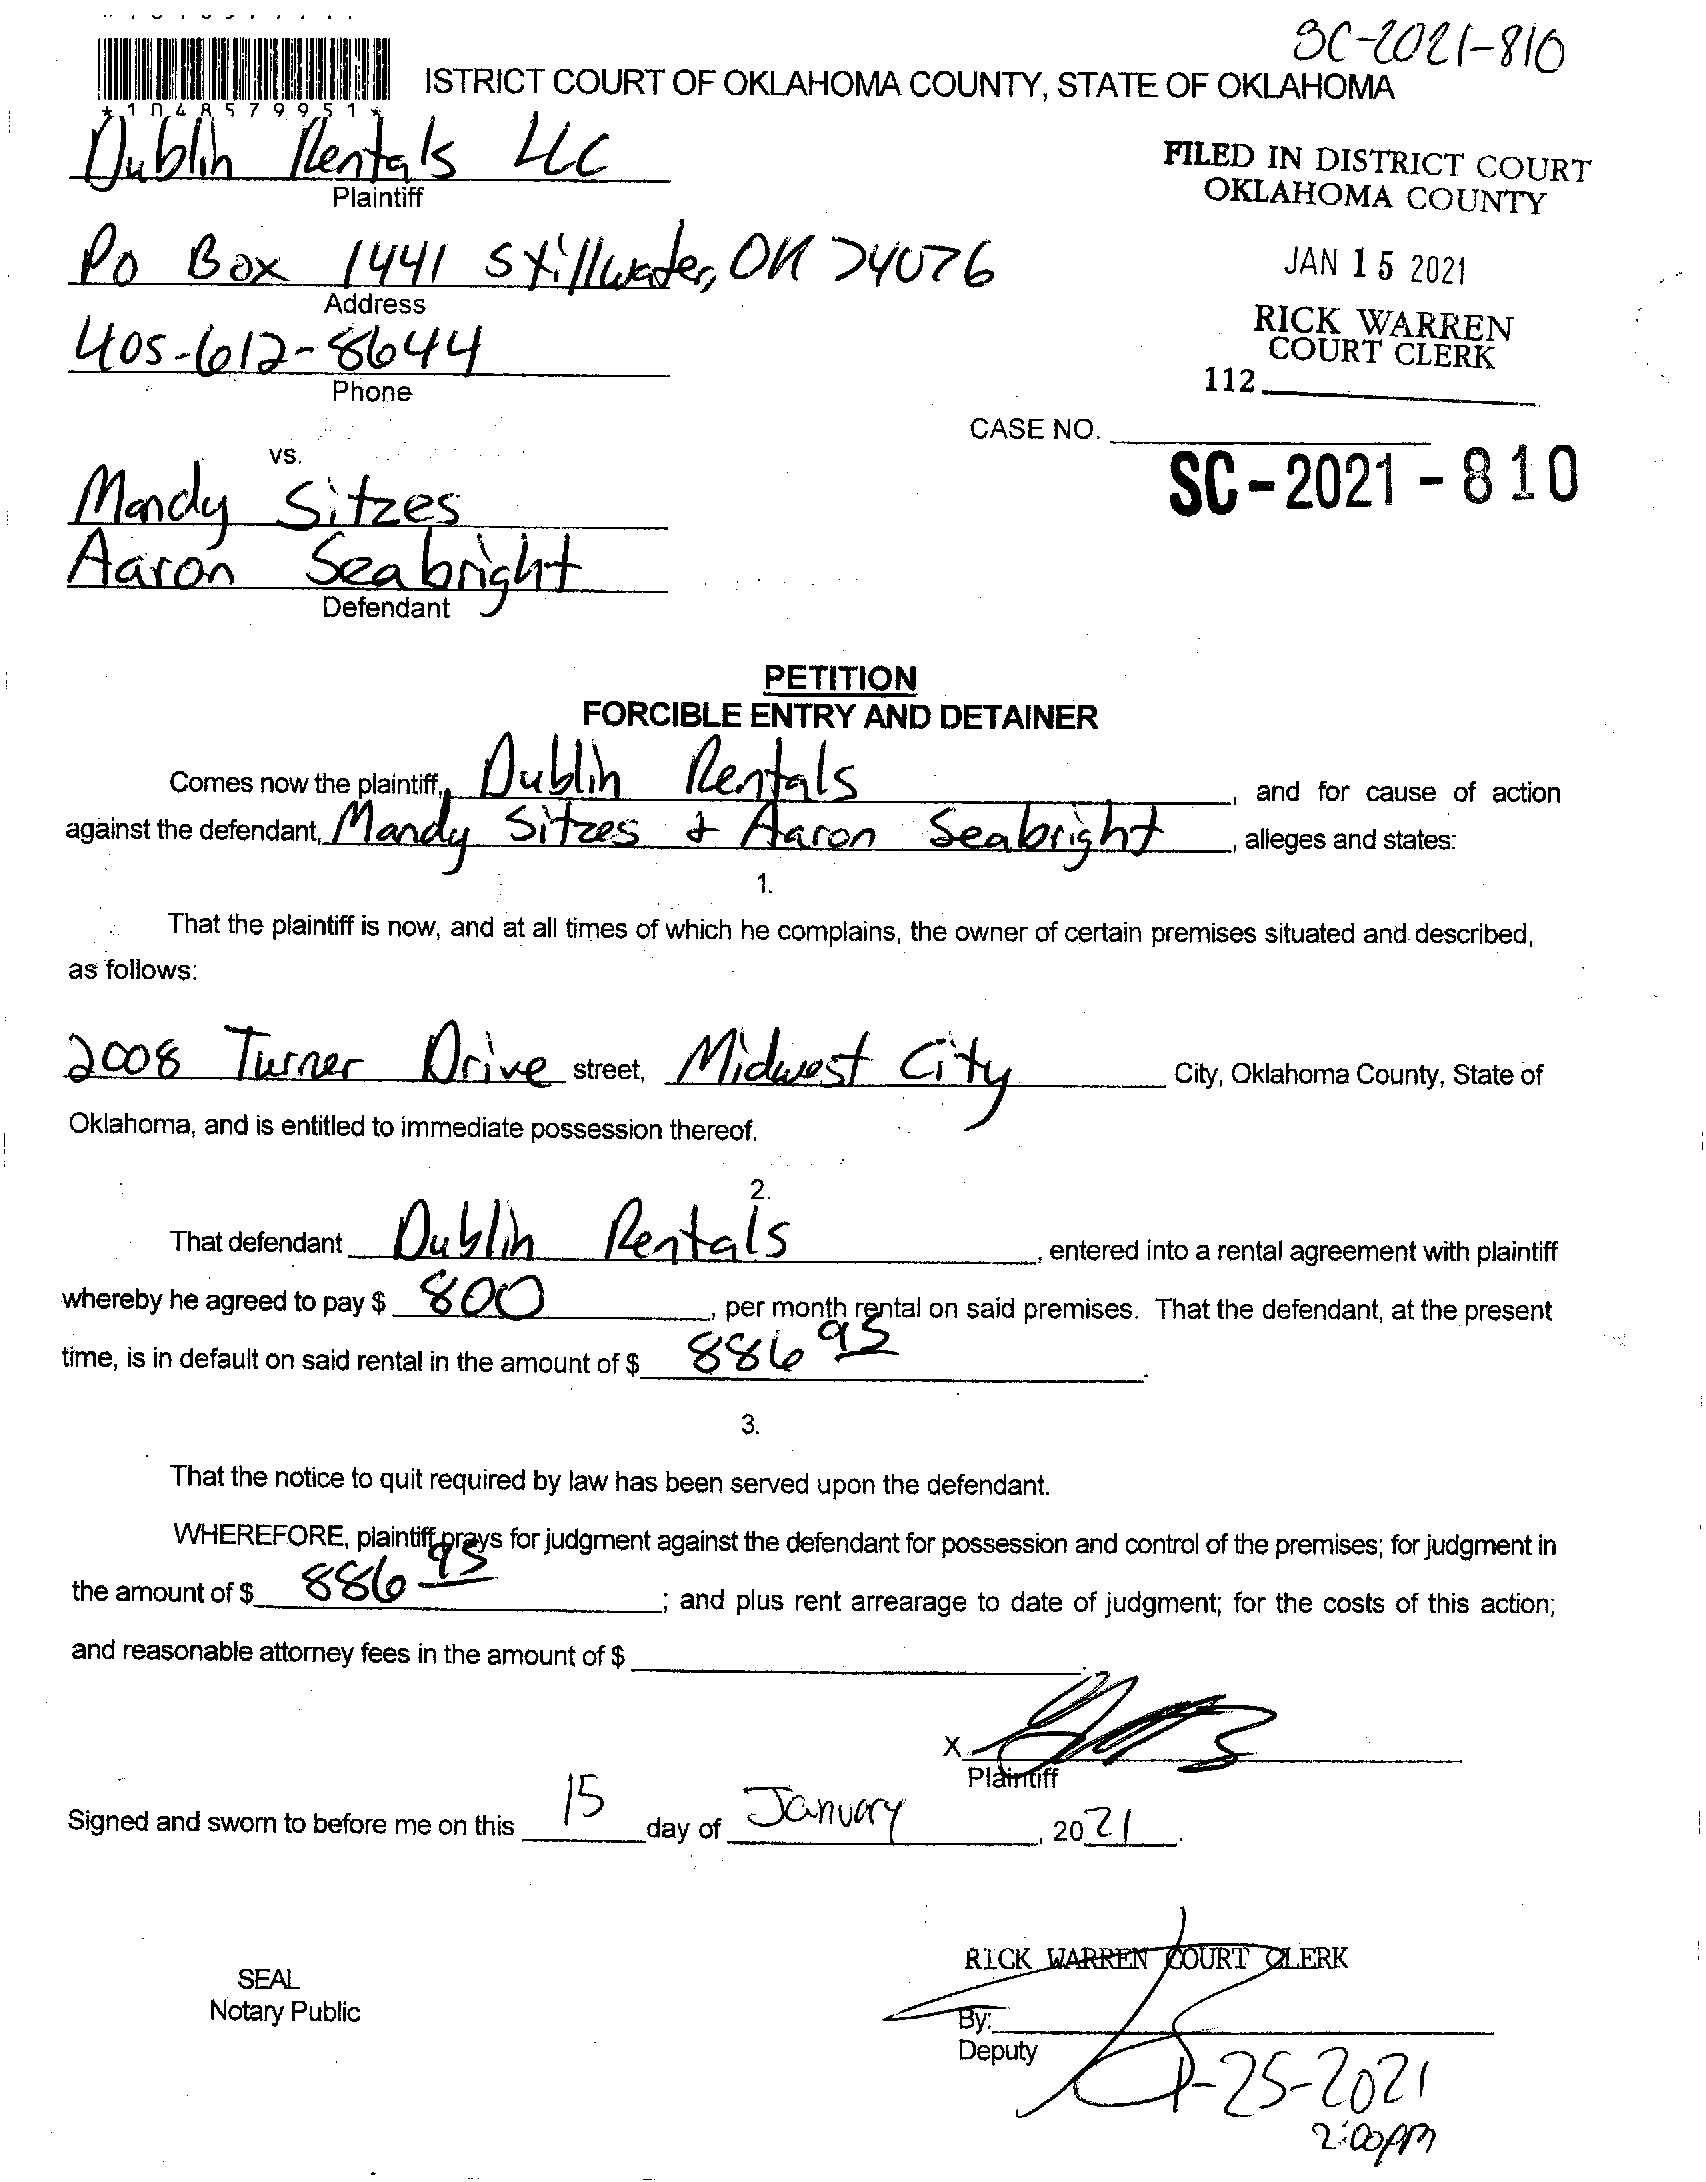 SC-2021-810
ISTRICT COURT OF OKLAHOMA COUNTY, STATE OF OKLAHOMA
*1048579951*
Dublin Rentals LLC
Plaintiff
FILED IN DISTRICT COURT
OKLAHOMA COUNTY
PO Box 1441 Stillwater, OK 74076
Address
JAN 15 2021
405-612-8644
Phone
RICK WARREN
COURT CLERK
112
CASE NO.
SC-2021-810
vs.
Mandy Sitzes
Aaron Seabright
Defendant
PETITION
FORCIBLE ENTRY AND DETAINER
Comes now the plaintiff, Dublin Rentals, and for cause of action
against the defendant, Mandy Sitzes & Aaron Seabright, alleges and states:
1.
That the plaintiff is now, and at all times of which he complains, the owner of certain premises situated and described,
as follows:
2008 Turner Drive street, Midwest City City, Oklahoma County, State of
Oklahoma, and is entitled to immediate possession thereof.
2.
That defendant Dublin Rentals, entered into a rental agreement with plaintiff
whereby he agreed to pay $ 800, per month rental on said premises. That the defendant, at the present
time, is in default on said rental in the amount of $ 886 95.
3.
That the notice to quit required by law has been served upon the defendant.
WHEREFORE, plaintiff prays for judgment against the defendant for possession and control of the premises; for judgment in
the amount of $ 886 95; and plus rent arrearage to date of judgment; for the costs of this action;
and reasonable attorney fees in the amount of $
X
Plaintiff
Signed and sworn to before me on this 15 day of January, 2021.
RICK WARREN COURT CLERK
SEAL
Notary Public
By:
Deputy
1-25-2021
2:00pm